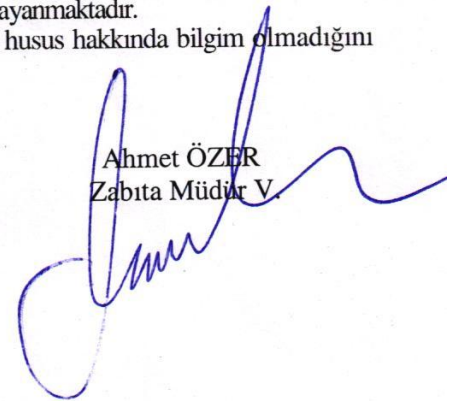 ayanmaktadır.
husus hakkında bilgim olmadığını
Ahmet ÖZER
Zabıta Müdür V.